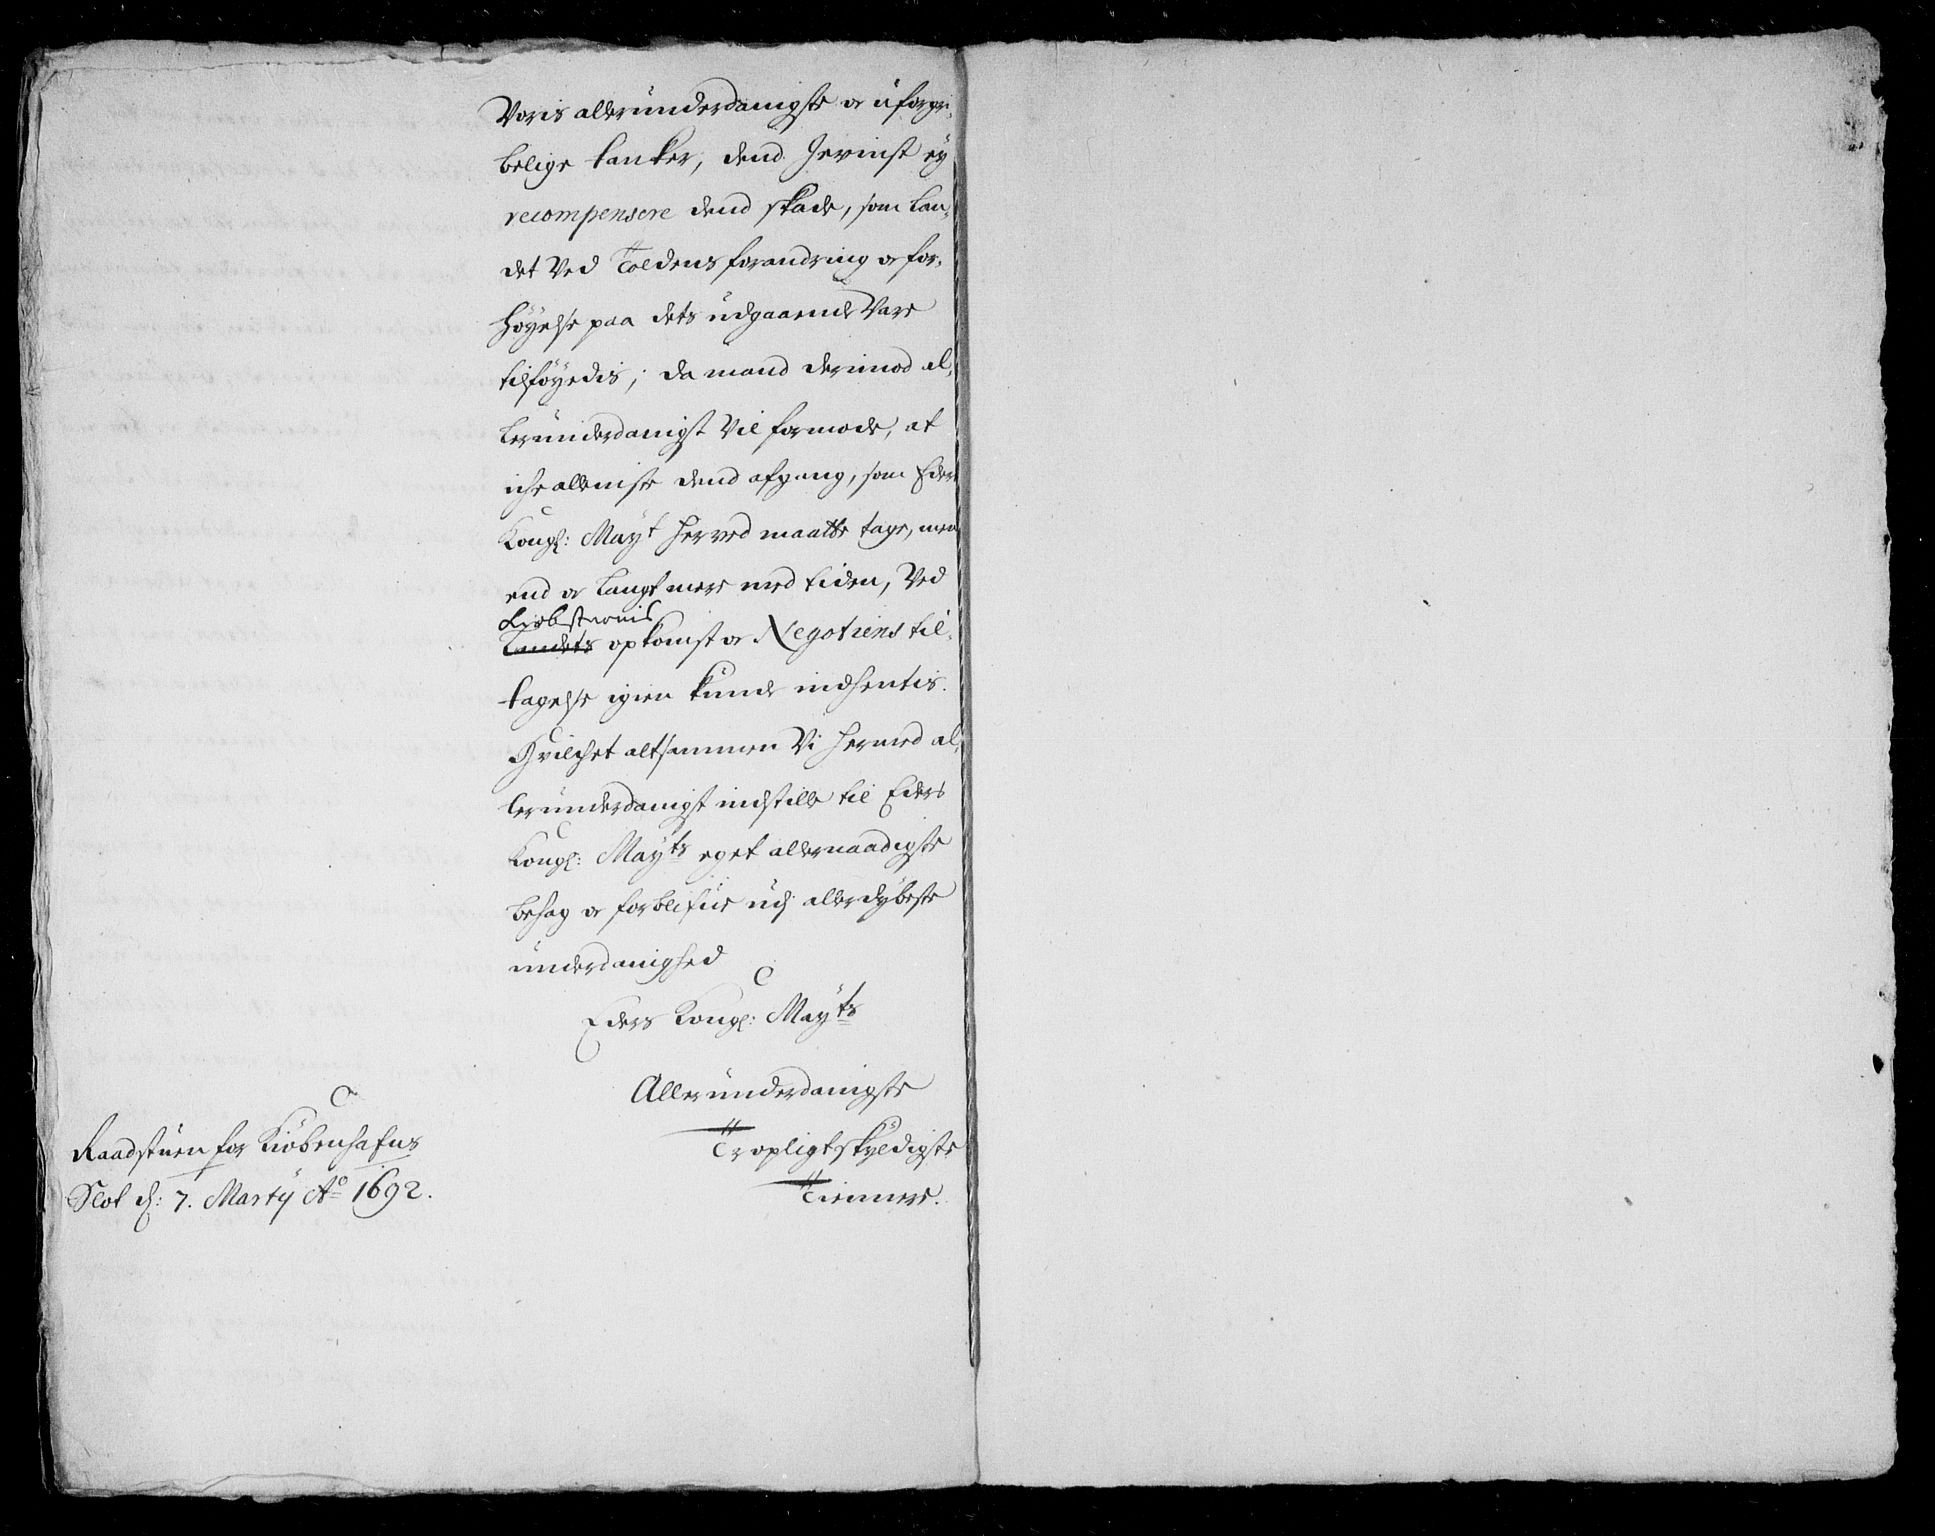 Voris allerunderdanigste oc uforgri¬
belige tanker, dend gevinst ey
recompensere dend skade, som lan¬
det ved Toldens forandring oc for¬
höyelse paa dets udgaaende Vare
tilföyedis; da mand derimod al¬
lerunderdanigst vil formode, at
iche alleniste dend afgang, som Eders
Kongl: Mayt herved maatte tage, men
end oc langt mere med tiden, ved
Kiöbstædernis
Landets opkomst oc Negotiens til¬
tagelse igien kunde indhentis.
Hvilchet altsammen Vi hermed al¬
lerunderdanigst indstille til Eders
Kongl: Mayts eget allernaadigste
behag oc forblifue udj allerdybeste
underdanighed
Eders Kongl: Mayts
Allerunderdanigste
Tropligtskyldigste
Tiennere.
Raadstuen for Kiöbenhafns
Slot d: 7. Martij Ao 1692.